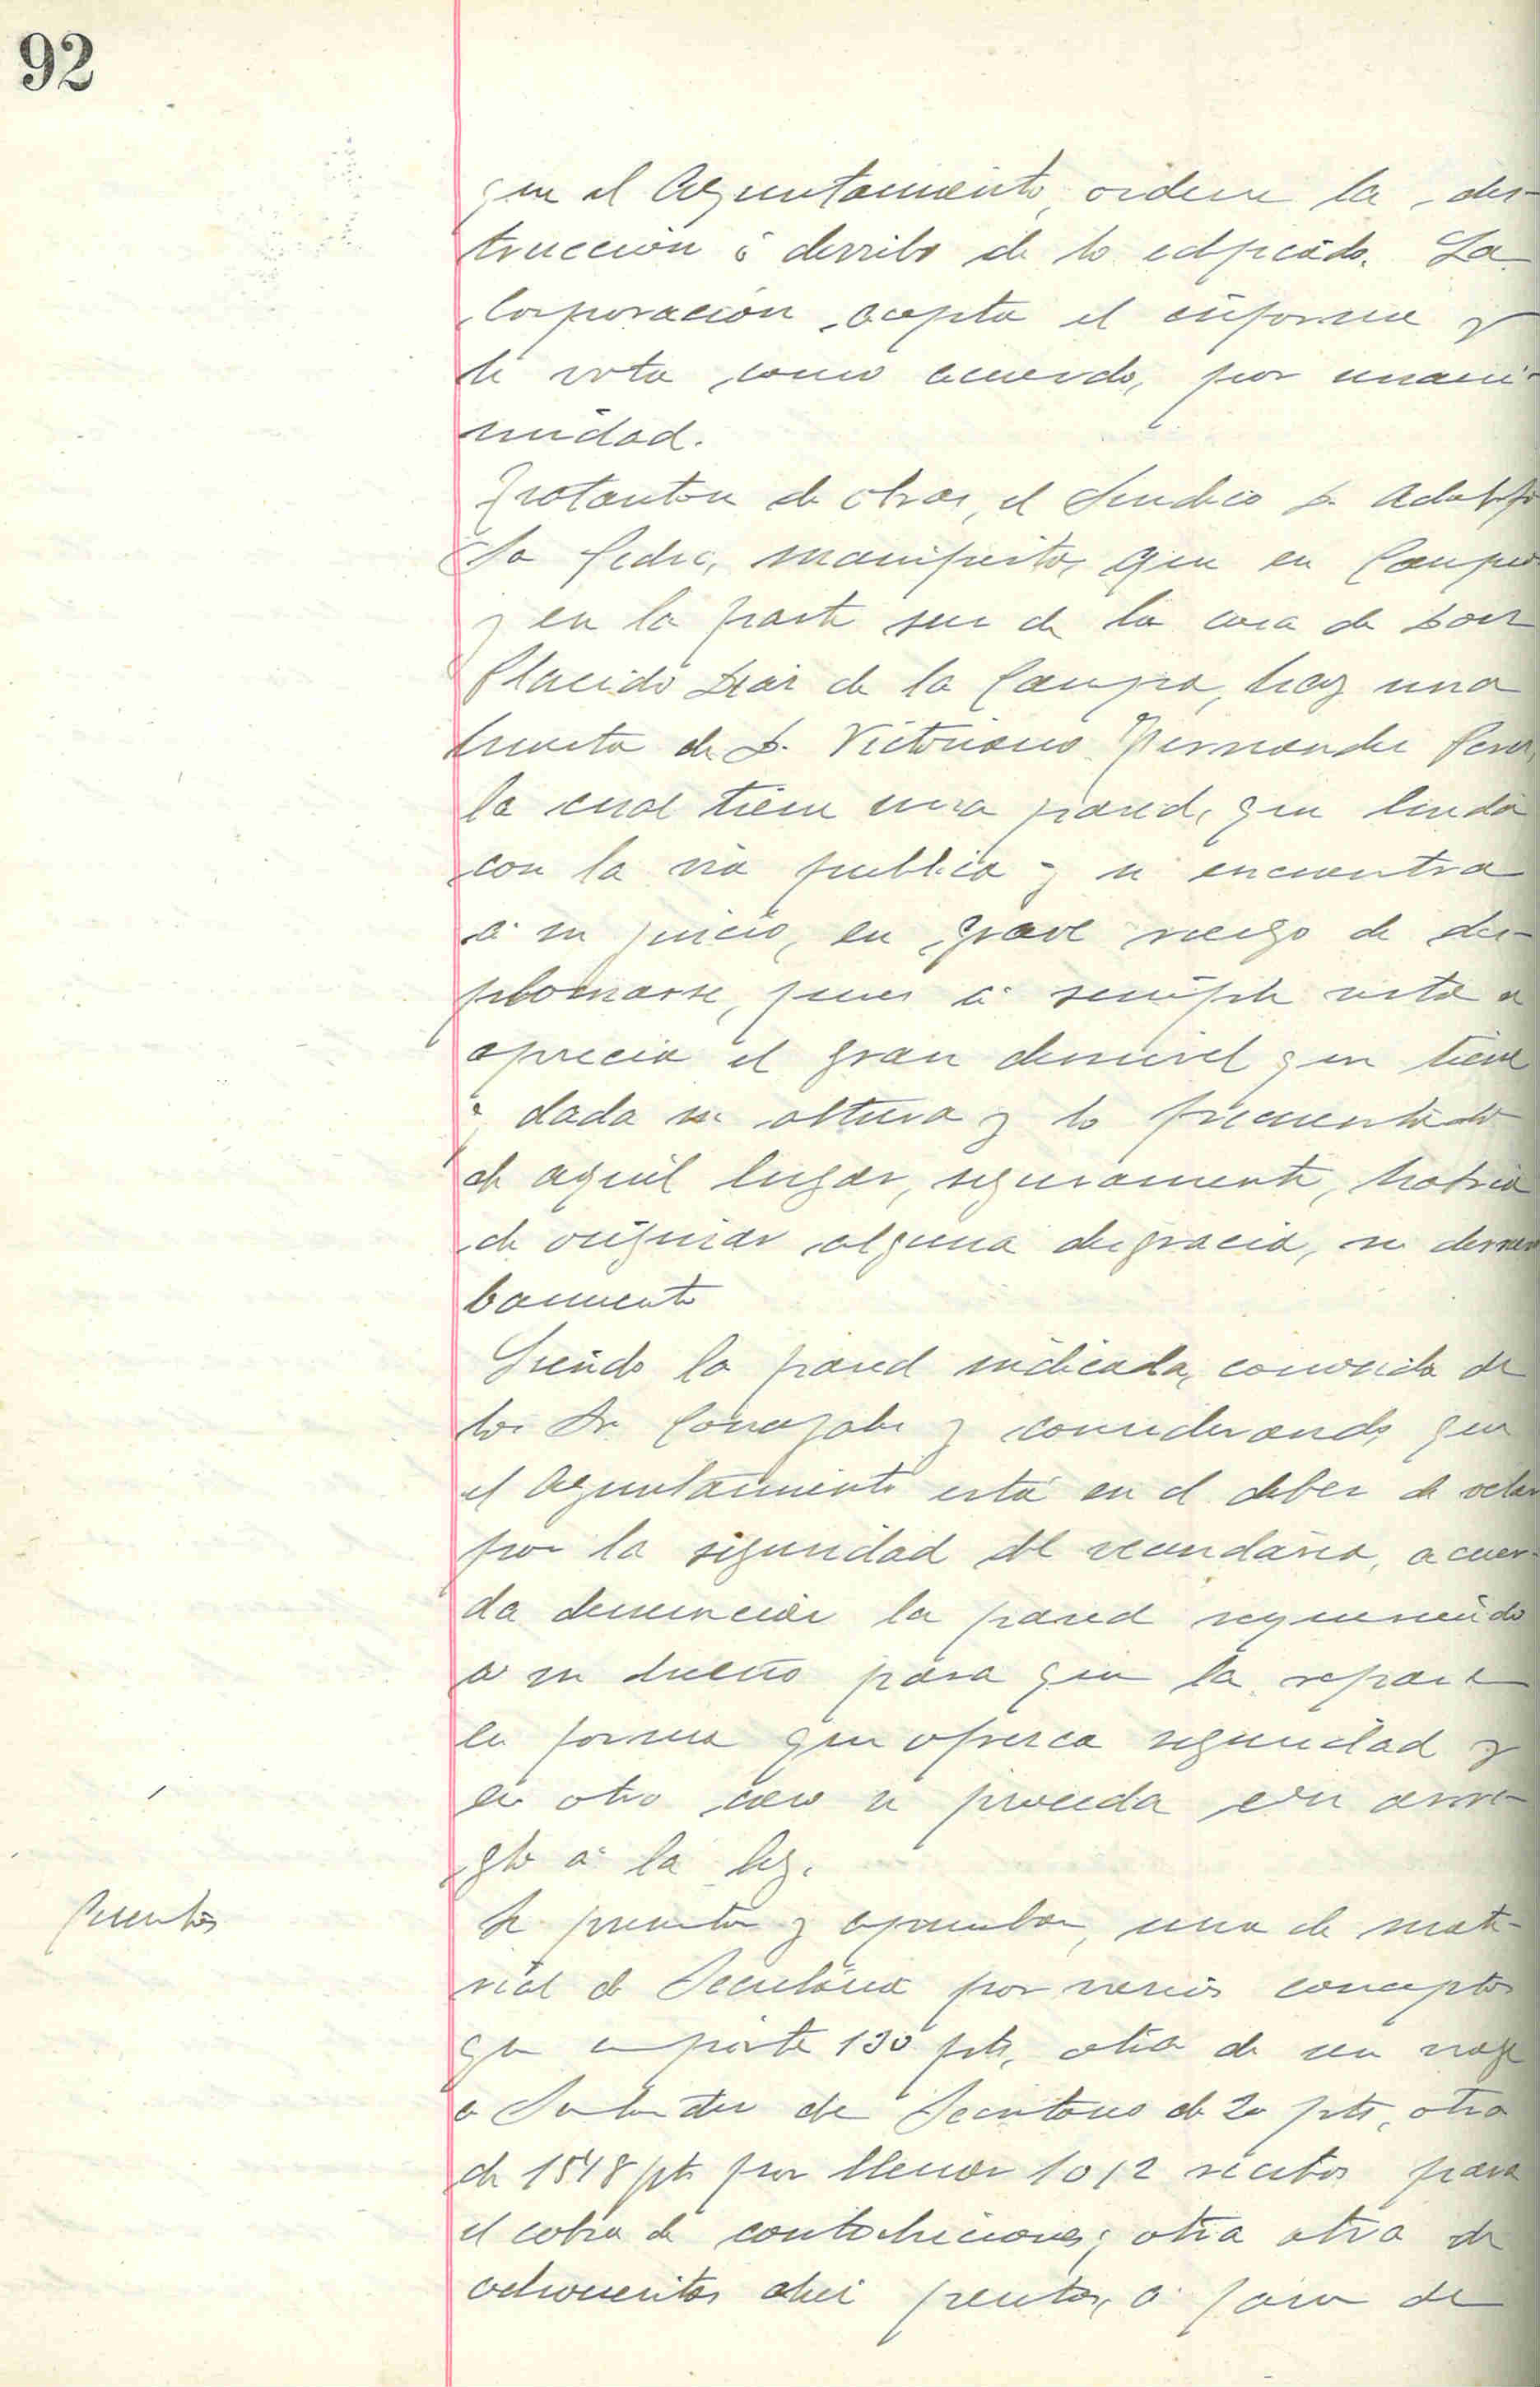 92
que el Ayuntamiento, ordene la des-
trucción ó derribo de lo edificado. La
Corporación acepta el informe y
le vota como acuerdo, por unani-
midad.
Tratanton de obras, el Sindico D. Adolfo
de la Pedra, manifesto, que en Campu
y en la parte sur de la casa de Don
Placido Diaz de la Campa, hay una
huerta de D. Victoriano Fernandez Perez,
la cual tiene una pared, que linda
con la via publica y se encuentra
á su juicio, en grave riesgo de des-
plomarse, pues á simple vista se
aprecia el gran desnivel que tiene
y dada su altura y lo frecuentado
de aquel lugar, seguramente, habria
de originar alguna desgracia, su derrum
bamiento
Siendo la pared indicada, conocida de
los Sr. Concejales y considerando que
el Ayuntamiento está en el deber de velar
por la seguridad del vecindario, acuer-
da denunciar la pared requiriendo
a su dueño para que la repare
en forma que ofrezca seguridad y
en otro caso se proceda con arre-
glo á la ley.
Cuentas
Se presentan y aprueban, una de mate-
rial de Secretaria por varios conceptos
que importe 130 pts, otra de un viaje
a Santander de Secretario de 20 pts, otra
de 15'18 pts por llenar 1012 recibos para
el cobro de contribuciones; otra otra de
ochocientas diez pesetas, á favor de